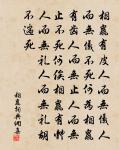 相鼠有皮人而無儀人
而無儀不死何為相鼠
有齒人而無止人而無
止不死何俟相鼠有體
人而無禮人而無禮胡
不遄死